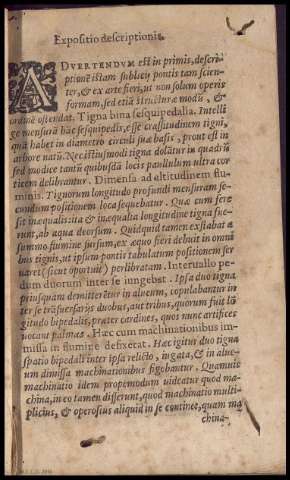 Expositio descriptionis.
ADVERTENDVM est in primis, descri-
ptionē istam sublicij pontis tam scien-
ter, & ex arte fieri, ut non solum operis
formam, sed etiā structuræ modū, &
ordinē ostendat. Tigna bina sesquipedalia. Intelli
ge mensurā hāc sesquipedis, esse crassitudinem tigni,
quā habet in diametro circuli suæ basis, prout est in
arbore nata. Nec istiusmodi tigna dolātur in quadrū
sed modice tantū quibusdā locis paullulum ultra cor
ticem delibrantur. Dimensa ad altitudinem flu-
minis. Tignorum longitudo profundi mensuram se-
cundum positionem loca sequebatur. Quæ cum fere
sit inæqualis ita & inæqualia longitudine tigna fue-
runt, ab aqua deorsum. Quidquid tamen exstabat a
summo flumine sursum, ex æquo fieri debuit in omni
bus tignis, ut ipsum pontis tabulatum positionem ser
uaret (sicut oportuit) perlibratam. Interuallo pe-
dum duorum inter se iungebat. Ipsa duo tigna
priusquam demitterētur in alueum, copulabantur in
ter se trāsuersarijs duobus, aut tribus, quorum fuit lō
gitudo bipedalis, præter cardines, quos nunc artifices
uocant palmas. Hæc cum machinationibus im-
missa in flumine defixerat. Hæc igitur duo tigna
spatio bipedali inter ipsa relicto, iugata, & in alue-
um dimissa machinationibus figobantur. Quamuis
machinatio idem propemodum uideatur quod ma-
china, in eo tamen differunt, quod machinatio multi-
plicius, & operosius aliquid in se continet, quam ma
china